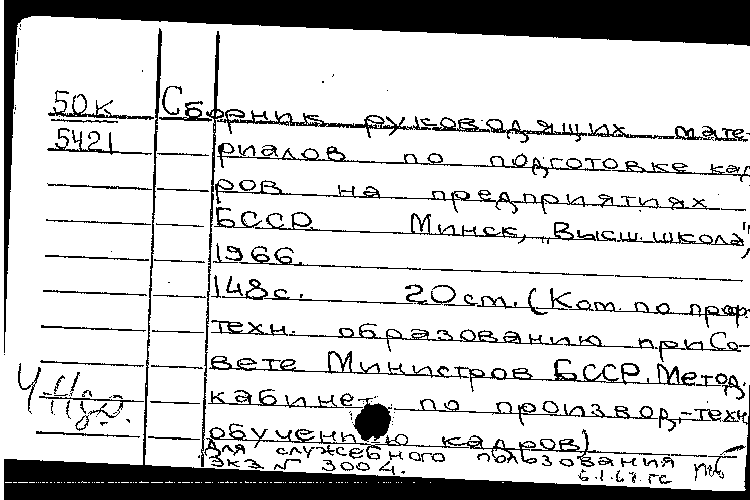 50к Сборник руководящих мате-
5421 риалов по подготовке кад
ров на предприятиях
БССР. Минск, „Высш. школа",
1966.
148с. 20 см. (Ком. по проф-
техн. образованию при Со-
вете Министров БССР. Метод.
кабинет по производ.-техн.
обучению кадров)
Для служебного пользования
Экз № 3004.
6.1.67. гс